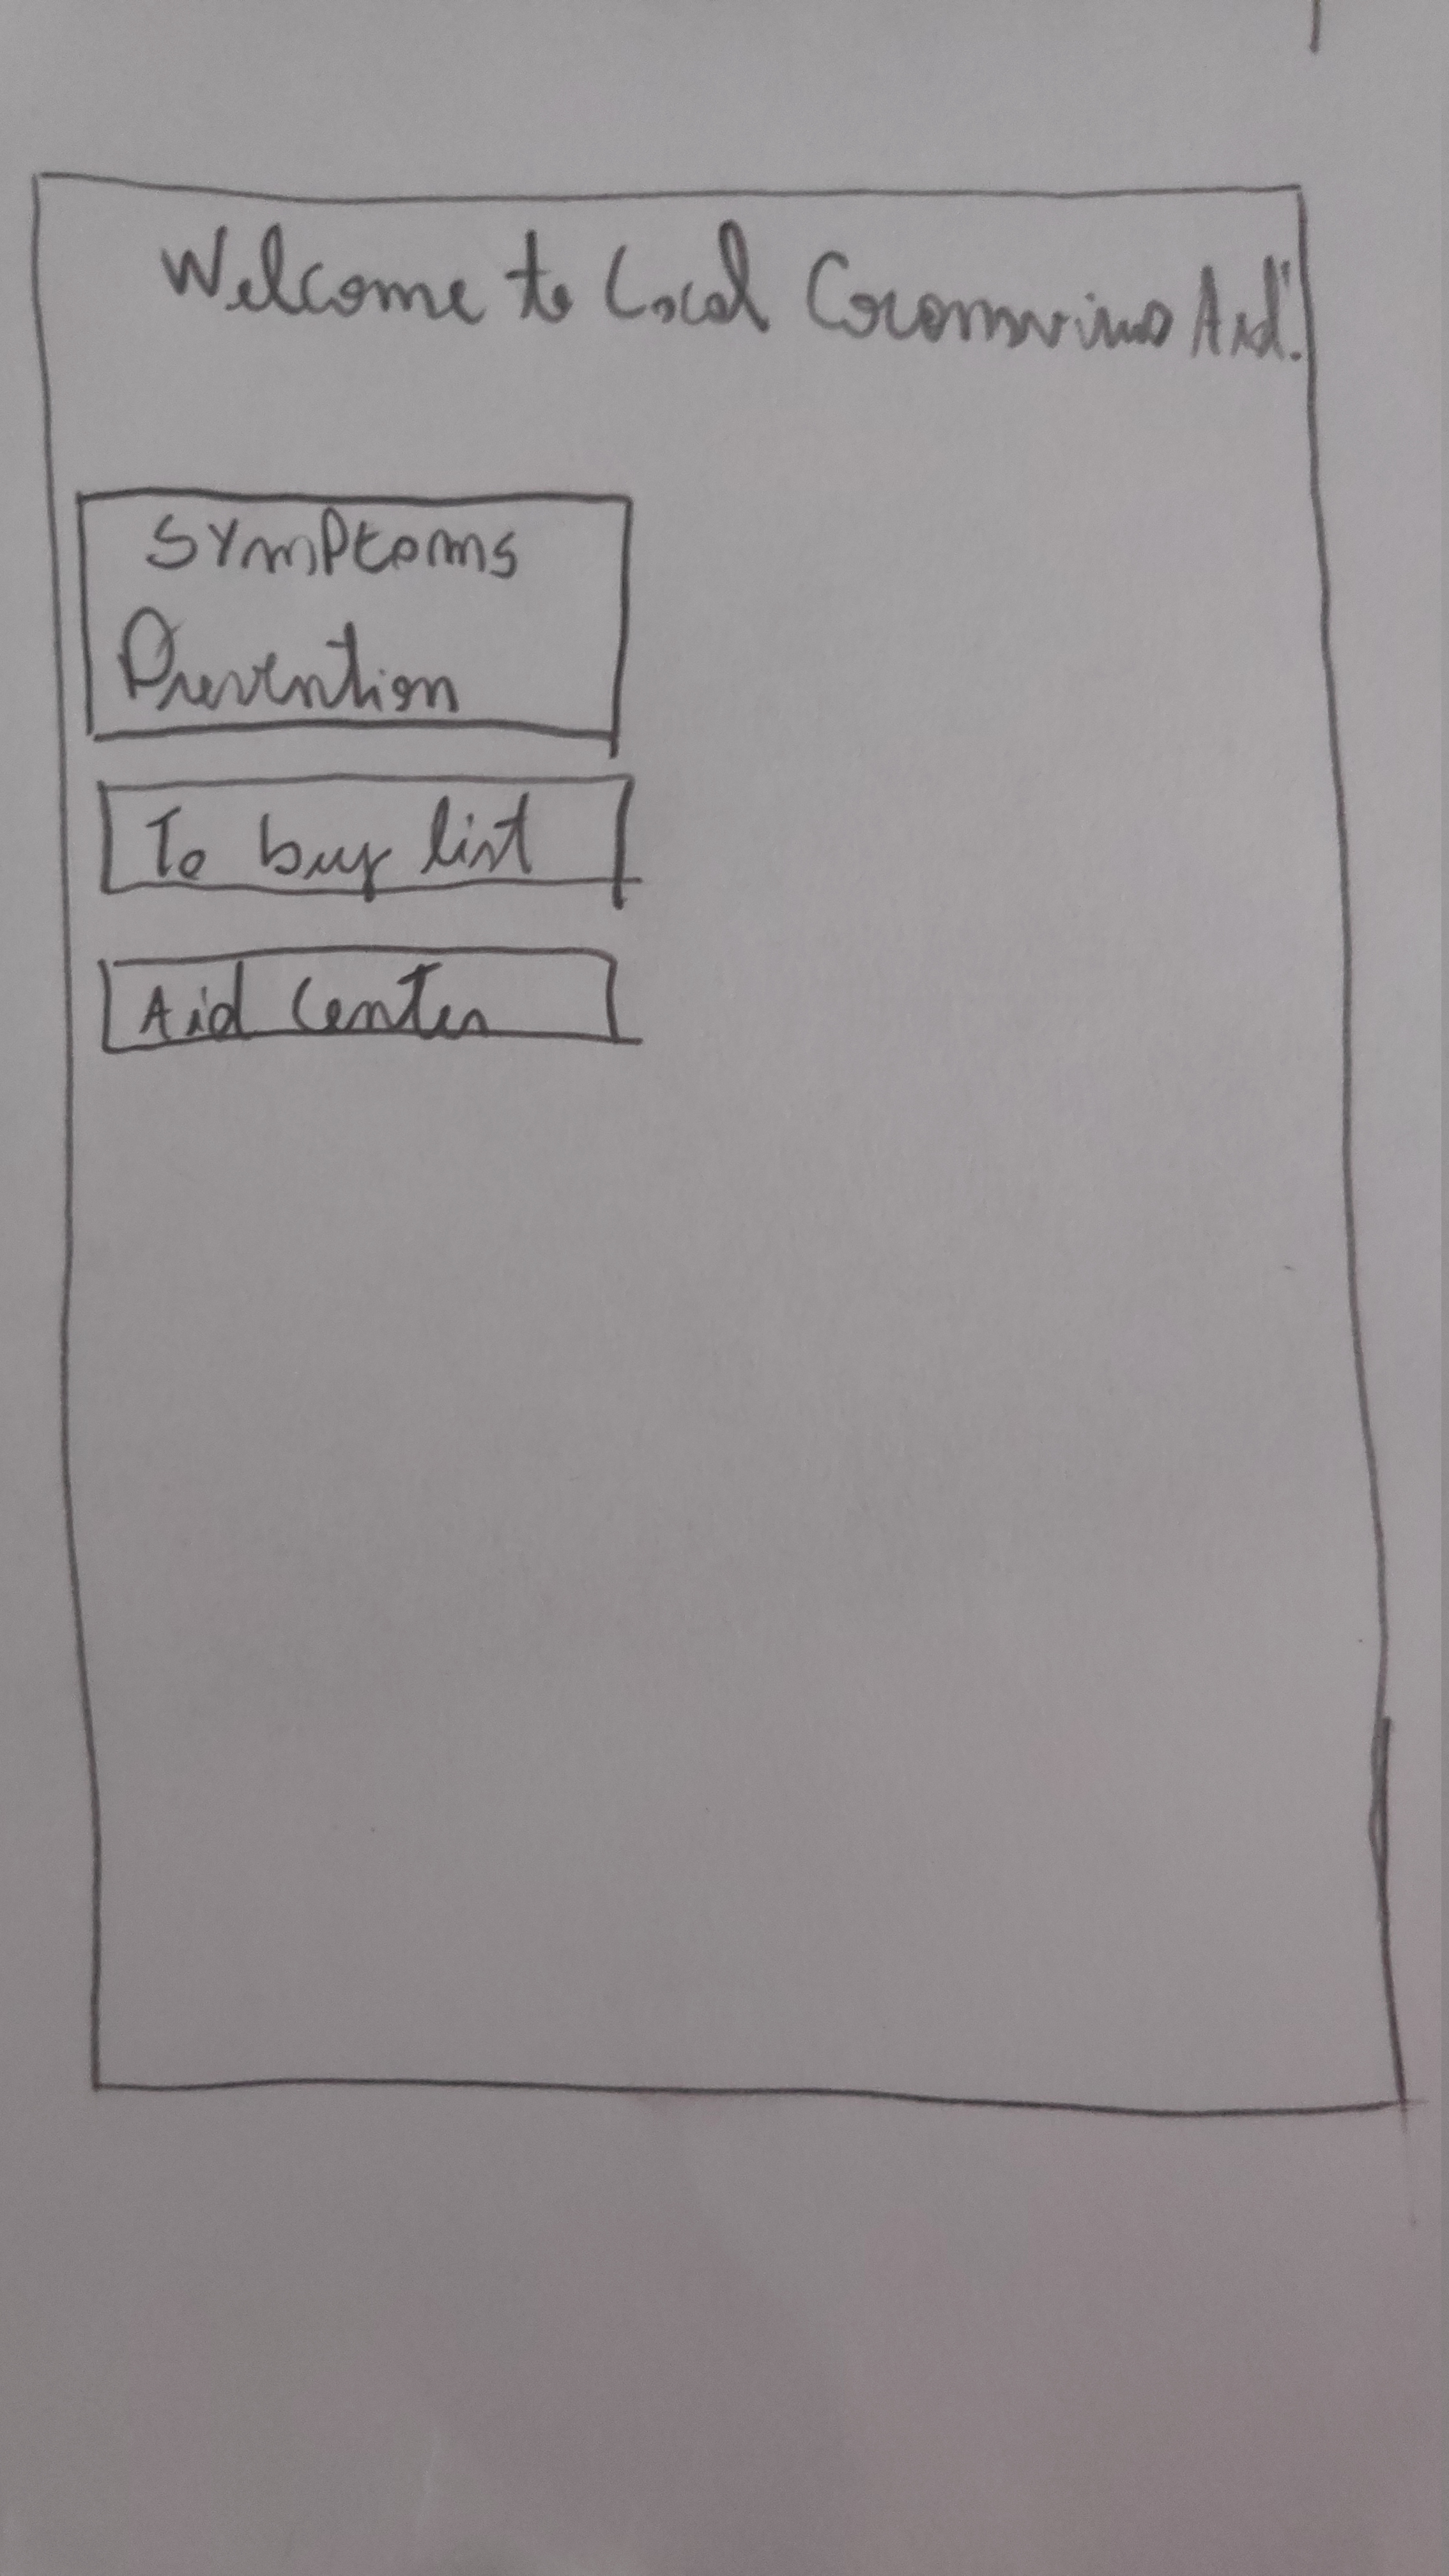 Welcome to Local Coronavirus Aid.
Symptoms
Prevention
To buy list
Aid Center